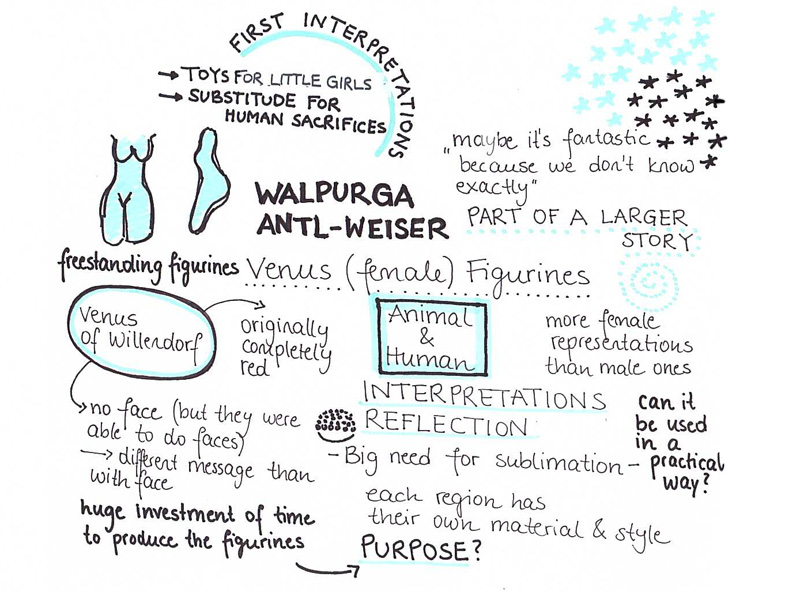 FIRST INTERPRETATIONS
→ TOYS FOR LITTLE GIRLS
→ SUBSTITUDE FOR
HUMAN SACRIFICES
"maybe it's fantastic
because we don't know
exactly"
WALPURGA
ANTL-WEISER
PART OF A LARGER
STORY
freestanding figurines
Venus (female) Figurines
Venus
of Willendorf
originally
completely
red
Animal
&
Human
more female
representations
than male ones
no face (but they were
able to do faces)
→ different message than
with face
huge investment of time
to produce the figurines
INTERPRETATIONS
REFLECTION
- Big need for sublimation -
can it
be used
in a
practical
way?
each region has
their own material & style
PURPOSE?